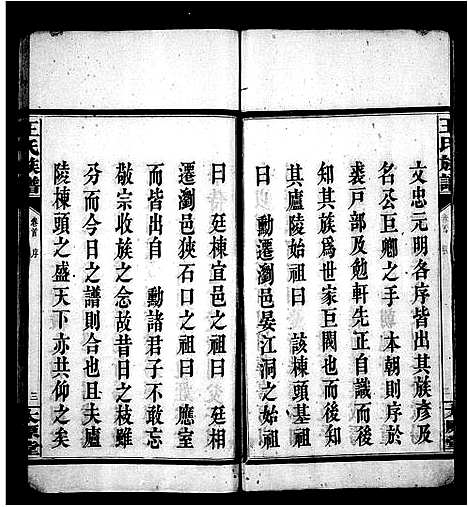 王氏族譜
文忠元明各序皆出其族彥及
名公巨卿之手 本朝則序於
裘戸部及勉軒先正自識而後
知其族爲世家巨閥也而後知
其廬陵始祖曰 該棟頭基祖
曰 勳遷瀏邑晏江洞之始祖
曰 廷棟宜邑之祖曰 廷相
遷瀏邑狹石口之祖曰 應室
而皆出自 勳諸君子不敢忘
敬宗收族之念故昔日之枝雖
分而今日之譜則合也且夫廬
陵棟頭之盛天下亦共仰之矣
王氏族譜
卷首 序
三
太原堂